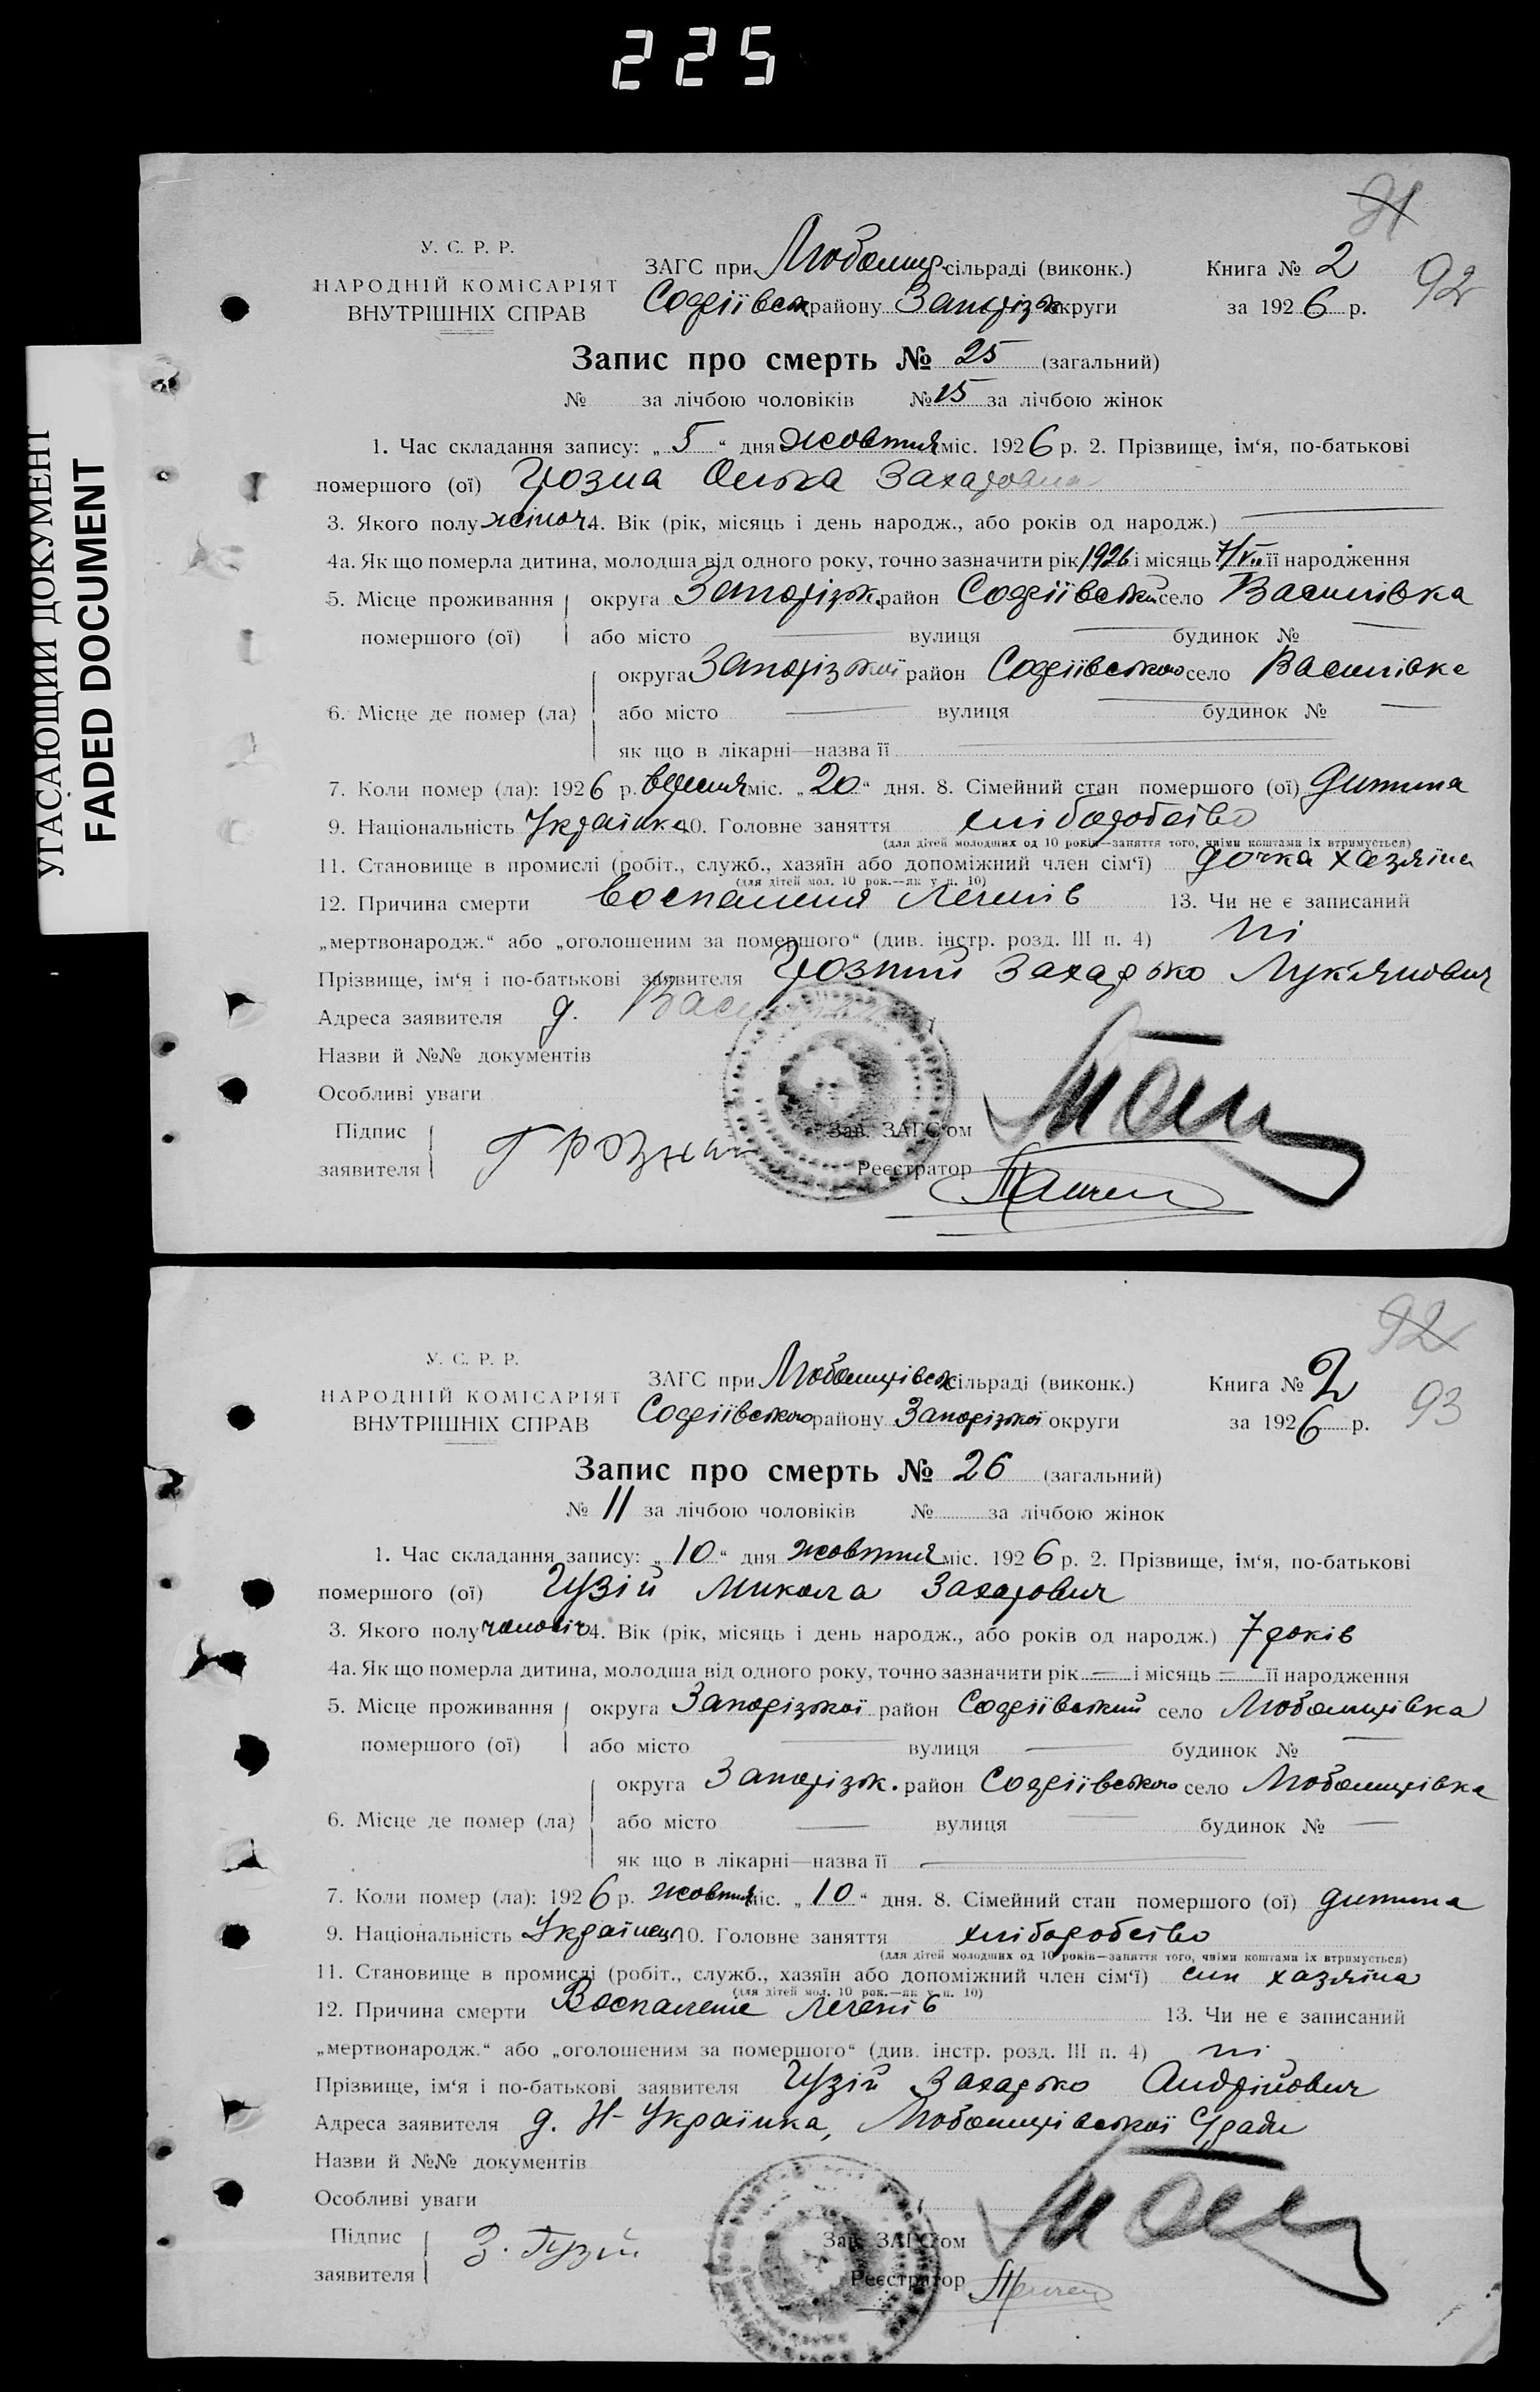 225
УГАСАЮЩИЙ ДОКУМЕНТ
FADED DOCUMENT
91
92
У. С. Р. Р.
НАРОДНІЙ КОМІСАРІЯТ
ВНУТРІШНІХ СПРАВ
ЗАГС при Любомир. сільраді (виконк.)
Софіївськ району Запоріжж округи
Книга № 2
за 1926 р.
Запис про смерть № 25 (загальний)
№ за лічбою чоловіків № 15 за лічбою жінок
1. Час складання запису: „5“ дня жовтня міс. 1926 р. 2. Прізвище, ім‘я, по-батькові
помершого (ої) Грозна Олька Захаровна
3. Якого полу жіноч 4. Вік (рік, місяць і день народж., або років од народж.)
4а. Як що померла дитина, молодша від одного року, точно зазначити рік 1926 і місяць 7/VII її народження
5. Місце проживання округа Запоріжж. район Софіївський село Василівка
помершого (ої) або місто вулиця будинок №
округа Запорізької район Софіївського село Василівка
6. Місце де помер (ла) або місто вулиця будинок №
як що в лікарні—назва її
7. Коли помер (ла): 1926 р. вересня міс. „20“ дня. 8. Сімейний стан помершого (ої) дитина
9. Національність Українка 10. Головне заняття хліборобство
(для дітей молодших од 10 років—заняття того, чиїми коштами їх втримується)
11. Становище в промислі (робіт., служб., хазяїн або допоміжний член сім‘ї) дочка хазяїна
(для дітей мол. 10 рок.—як у п. 10)
12. Причина смерти Воспаления Легенів 13. Чи не є записаний
„мертвонародж.“ або „оголошеним за помершого“ (див. інстр. розд. III п. 4) ні
Прізвище, ім‘я і по-батькові заявителя Грозний Захарько Лук'янович
Адреса заявителя д. Василівка
Назви й №№ документів
Особливі уваги
Підпис
заявителя Грозний
Зав. ЗАГС‘ом
Реєстратор
92
93
У. С. Р. Р.
НАРОДНІЙ КОМІСАРІЯТ
ВНУТРІШНІХ СПРАВ
ЗАГС при Любомирівськ сільраді (виконк.)
Софіївського району Запорізької округи
Книга № 2
за 1926 р.
Запис про смерть № 26 (загальний)
№ 11 за лічбою чоловіків № за лічбою жінок
1. Час складання запису: „10“ дня жовтня міс. 1926 р. 2. Прізвище, ім‘я, по-батькові
помершого (ої) Гузій Микола Захарович
3. Якого полу чоловіч 4. Вік (рік, місяць і день народж., або років од народж.) 7 років
4а. Як що померла дитина, молодша від одного року, точно зазначити рік = і місяць = її народження
5. Місце проживання округа Запорізької район Софіївський село Любомирівка
помершого (ої) або місто вулиця будинок №
округа Запоріжж. район Софіївського село Любомирівка
6. Місце де помер (ла) або місто вулиця будинок №
як що в лікарні—назва її
7. Коли помер (ла): 1926 р. жовтня міс. „10“ дня. 8. Сімейний стан помершого (ої) дитина
9. Національність Українец 10. Головне заняття хліборобство
(для дітей молодших од 10 років—заняття того, чиїми коштами їх втримується)
11. Становище в промислі (робіт., служб., хазяїн або допоміжний член сім‘ї) син хазяїна
(для дітей мол. 10 рок.—як у п. 10)
12. Причина смерти Воспаление Легенів 13. Чи не є записаний
„мертвонародж.“ або „оголошеним за помершого“ (див. інстр. розд. III п. 4) ні
Прізвище, ім‘я і по-батькові заявителя Гузій Захарько Андрійович
Адреса заявителя д. Н-Українка, Любомирівської С/ради
Назви й №№ документів
Особливі уваги
Підпис
заявителя З. Гузій
Зав. ЗАГС‘ом
Реєстратор